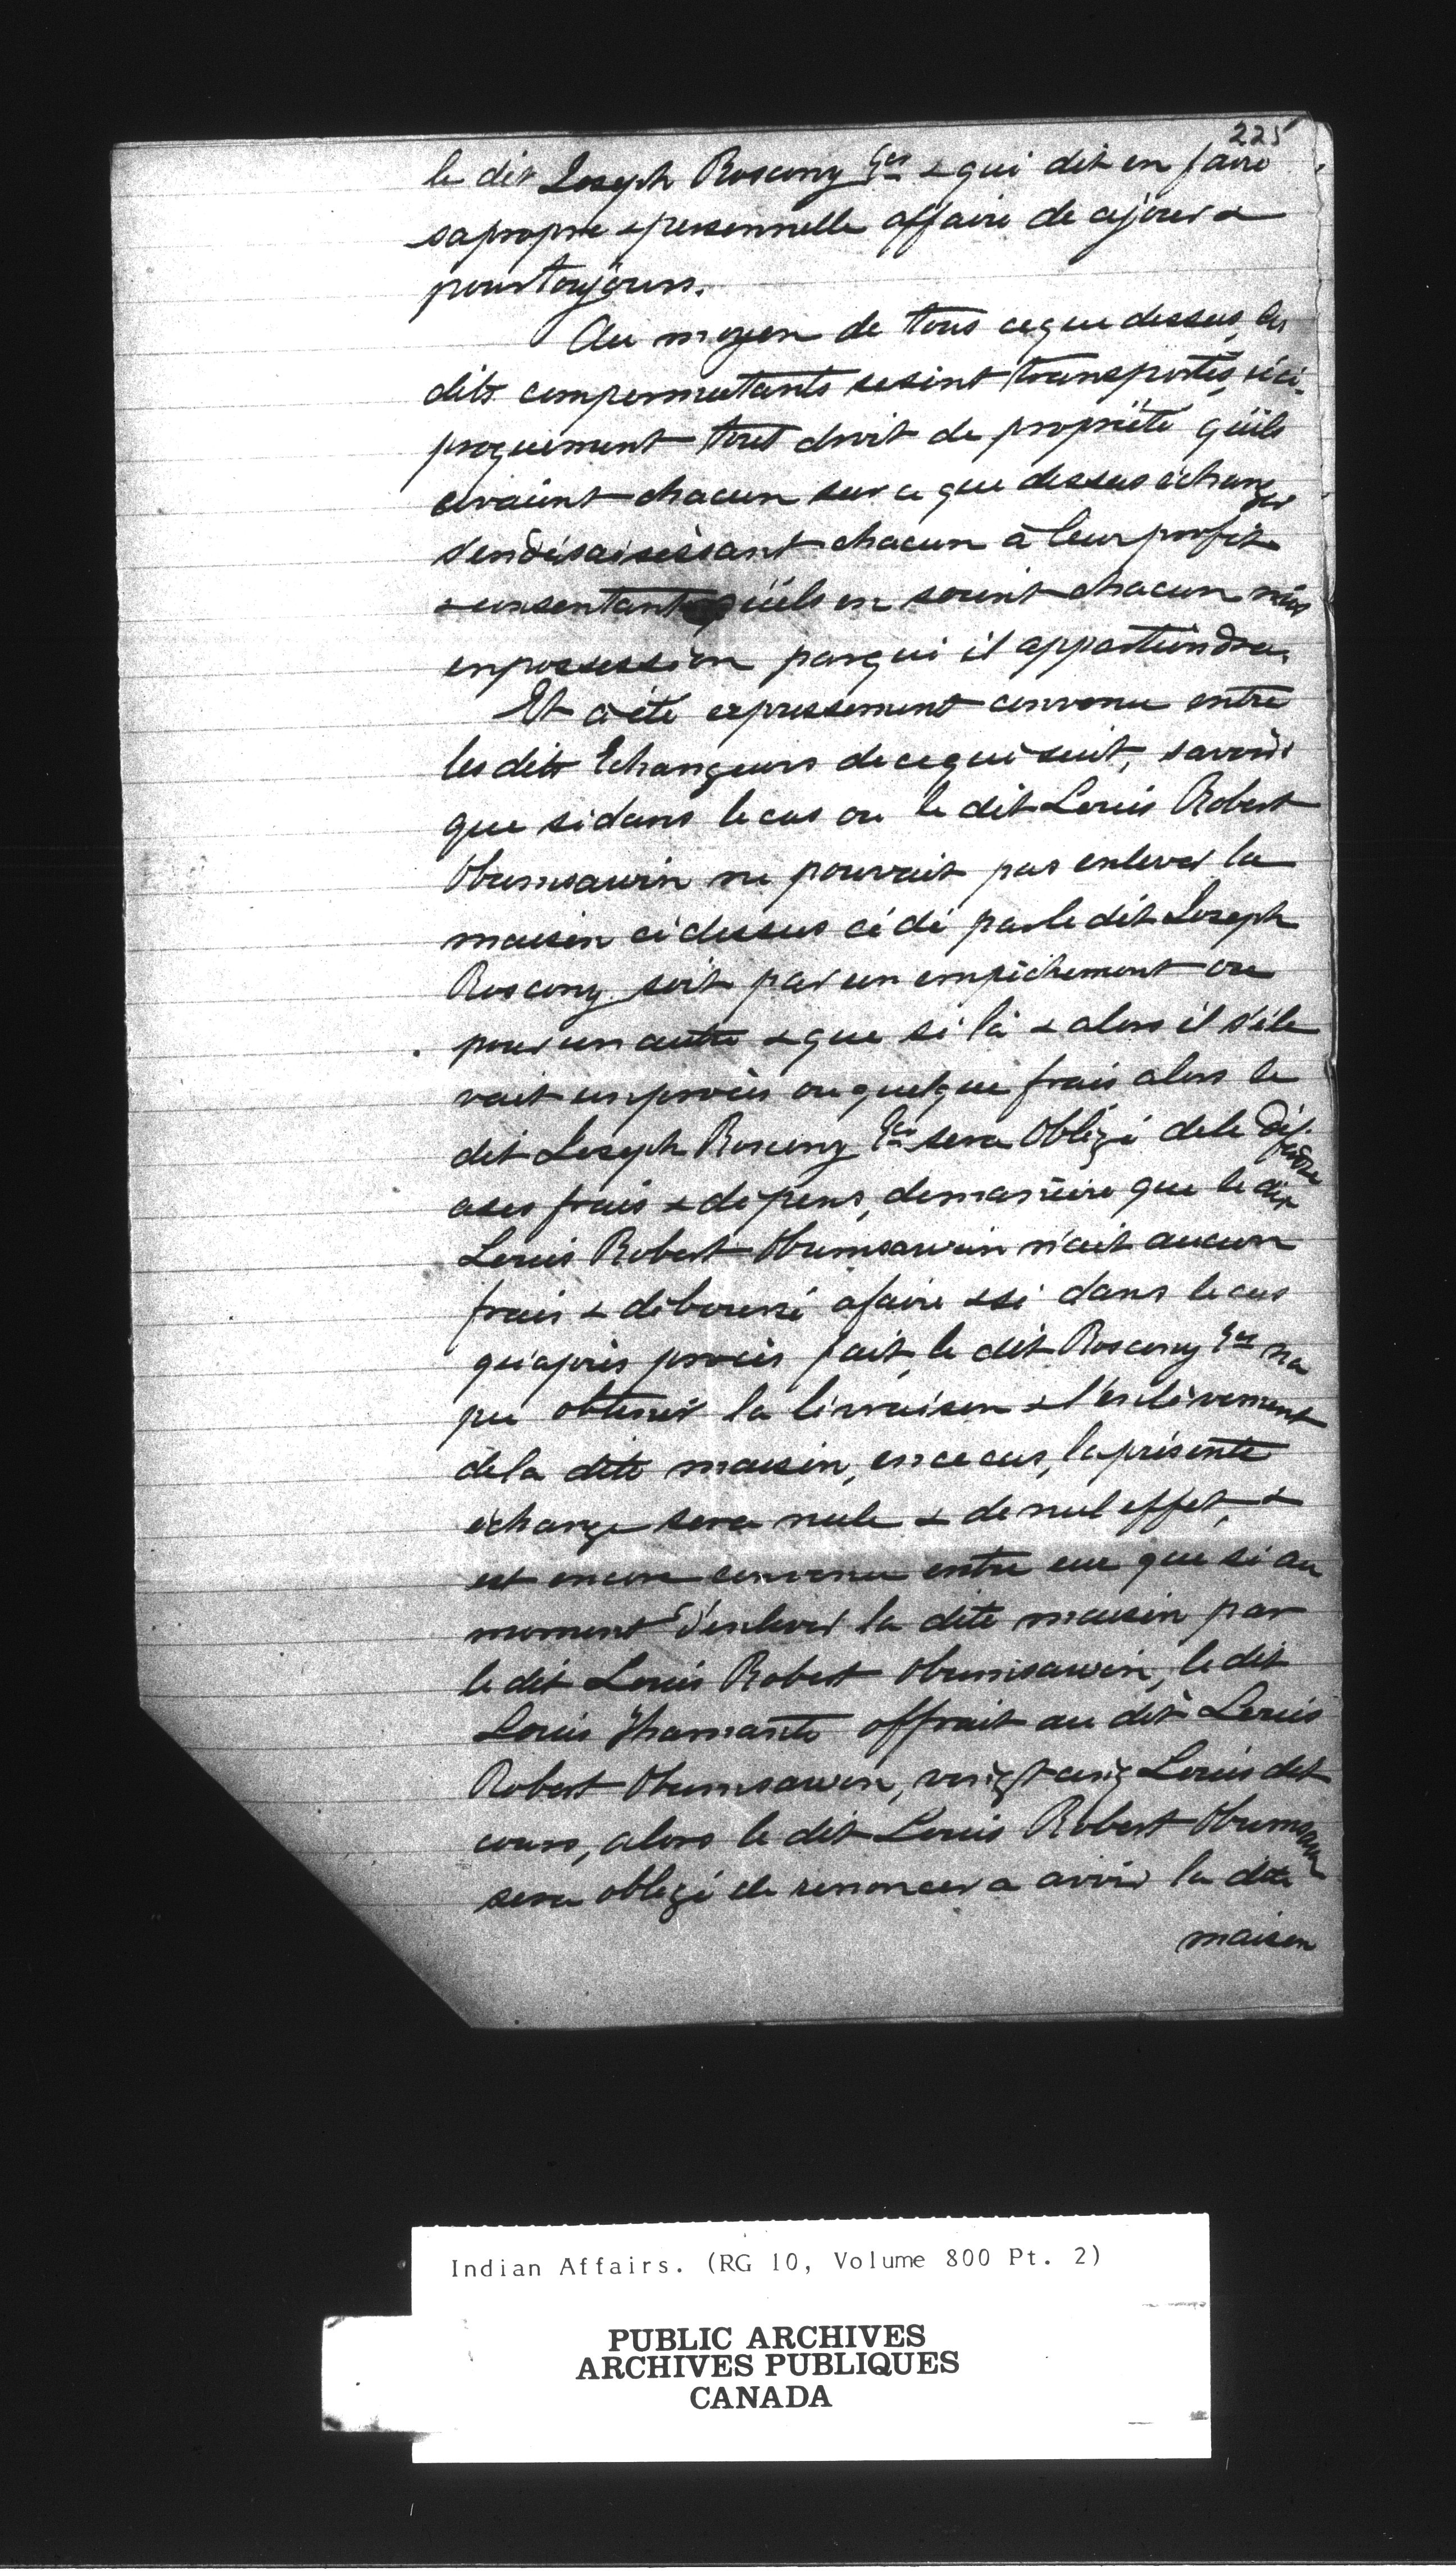 225
le dit Joseph Roscony Ges & qui dit en faire
sa propre & personnelle affaire de ce jour &
pour toujours.
Au moyen de tous ce que dessus, les
dits compermutants se sint transportés, réci-
proquement tout droit de propriété qu'ils
avaient chacun sur ce que dessus échangé
s'en désaisissant chacun à leur profit
& consentant qu'ils en soient chacun mis
en possession par qui il appartiendra.
Et a été expressement convenu entre
les dits Echangeurs de ce qui suit, savoir
que si dans le cas ou le dit Louis Robert
Obumsawin ne pouvait pas enlever la
maison ci dessus cédé par le dit Joseph
Roscony soit par un empêchement ou
pour un autre & que si là & alors il s'éle
vait un procès ou quelque frais alors le
dit Joseph Roscony Ges sera obligé de le défendre
a ses frais & dépens, de manière que le dit
Louis Robert Obumsawin n'ait aucun
frais & déboursé a faire & si dans le cas
qu'après procès fait, le dit Roscony Ges na
pu obtenir la livraison & l'enlèvement
de la dite maison, en ce cas, la présente
échange sera nule & de nul effet, &
est encore convenu entre eux que si au
moment d'enlever la dite maison par
le dit Louis Robert Obumsawin, le dit
Louis offrait au dit Louis
Robert Obumsawin, vingt cinq Louis dit
cours, alors le dit Louis Robert Obumsawin
sera obligé de renoncer a avoir la dite
maison
Indian Affairs. (RG 10, Volume 800 Pt. 2)
PUBLIC ARCHIVES
ARCHIVES PUBLIQUES
CANADA